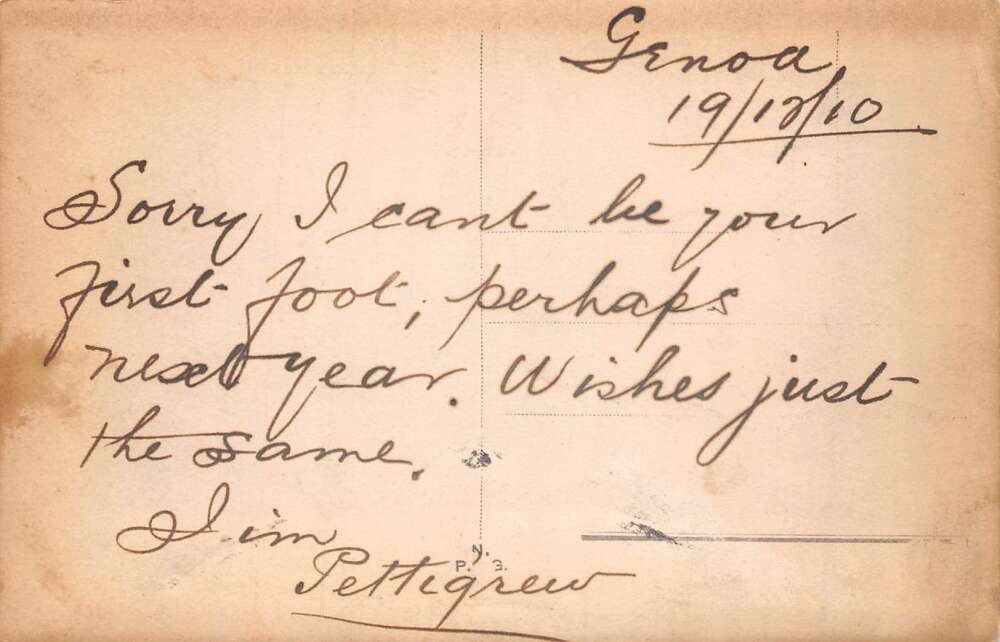 Genoa
19/12/10
Sorry I cant be your
first foot, perhaps
next year. Wishes just
the same.
Jim
Pettigrew
N.
P. G.